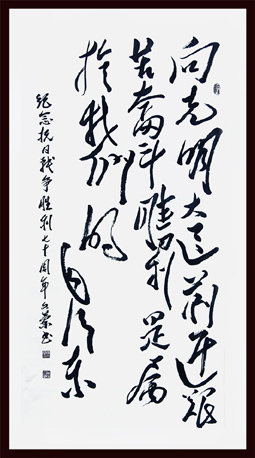 向光明大道前进艰
苦奮斗胜利是属
於我们的毛泽东
纪念抗日战争胜利七十周年书